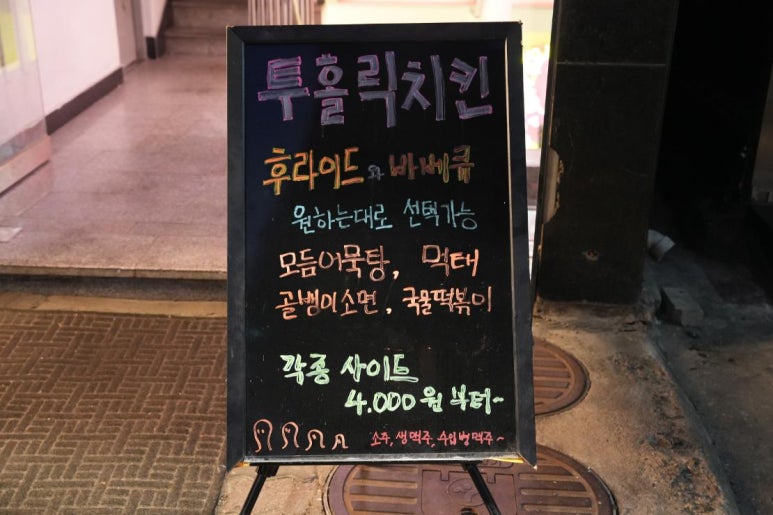 투홀릭치킨
후라이드와 바베큐
원하는대로 선택가능
모듬어묵탕, 먹태
골뱅이소면, 국물떡볶이
각종 사이드
4.000원 부터~
소주, 생맥주, 수입병맥주~